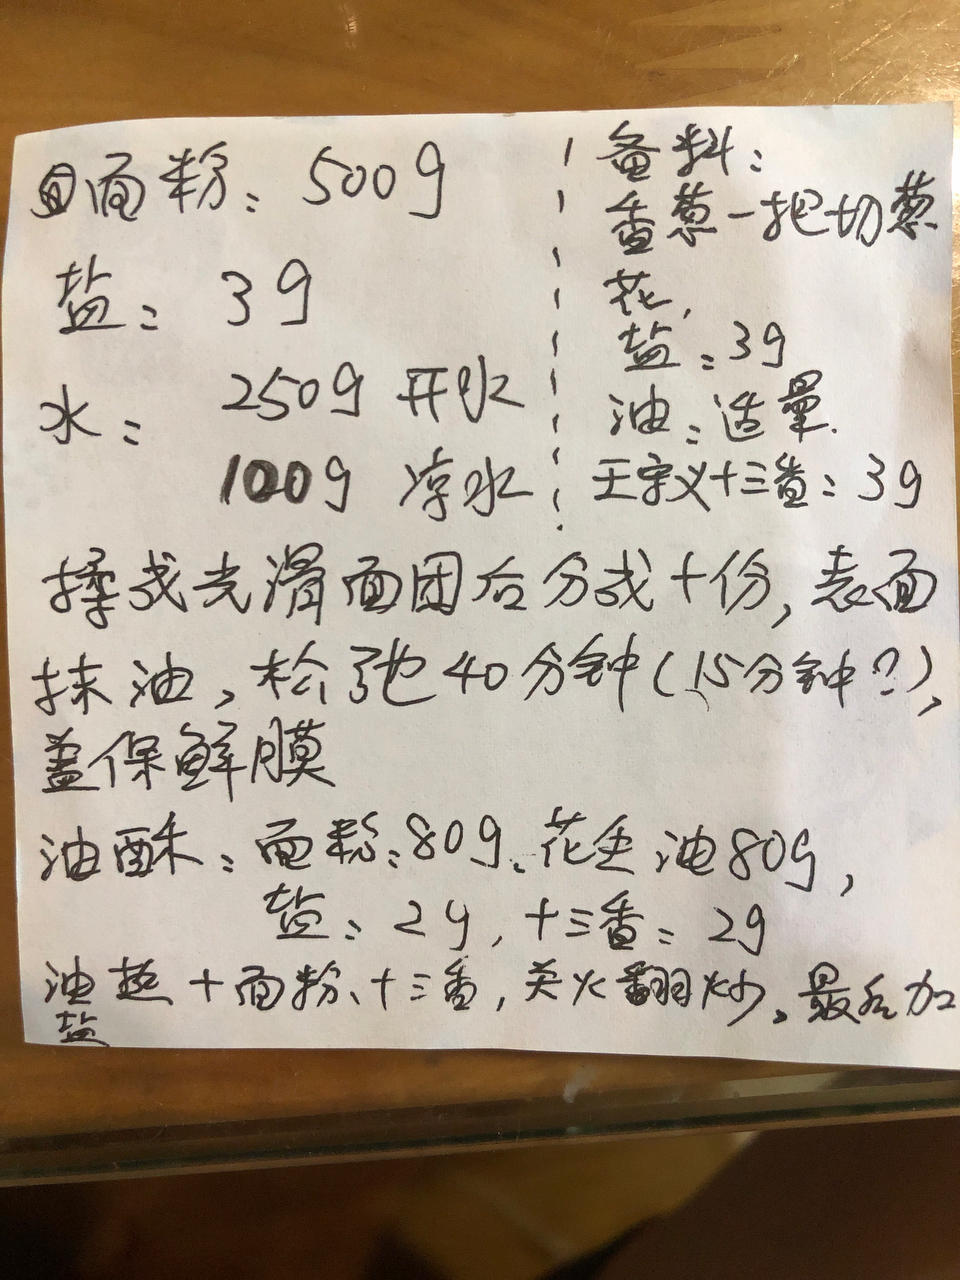 面粉：500g
盐：3g
水：250g 开水
100g 凉水
备料：
香葱一把切葱
花，
盐：3g
油：适量.
王守义十三香：3g
揉成光滑面团后分成十份，表面
抹油，松弛40分钟（15分钟？），
盖保鲜膜
油酥：面粉：80g、花生油80g，
盐：2g，十三香：2g
油热+面粉、十三香，关火翻炒、最后加
盐